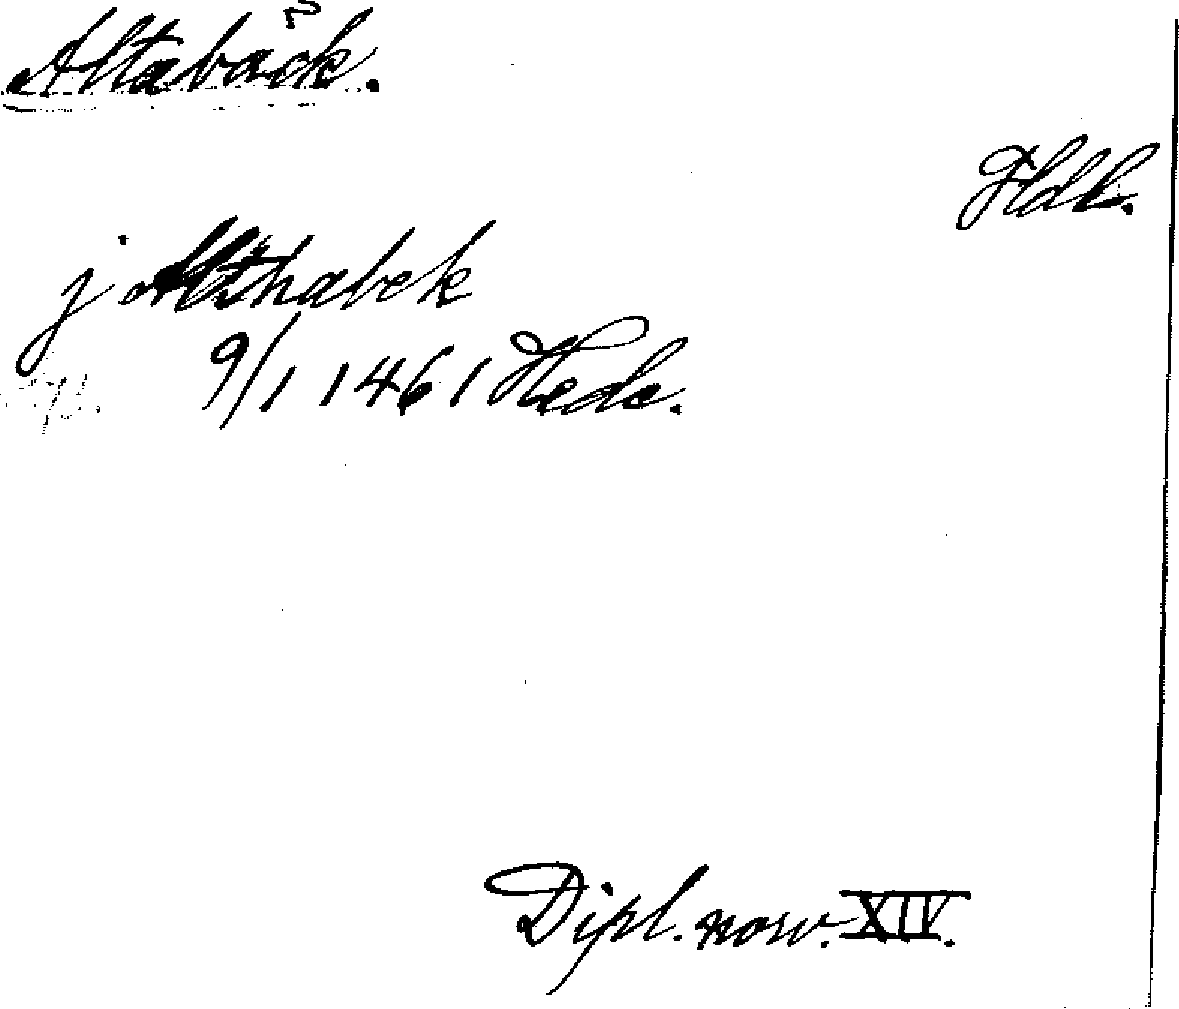 Altabäck.
Hdl.
j Althabek
9/1 1461 Hede.
Dipl. norv. XIV.